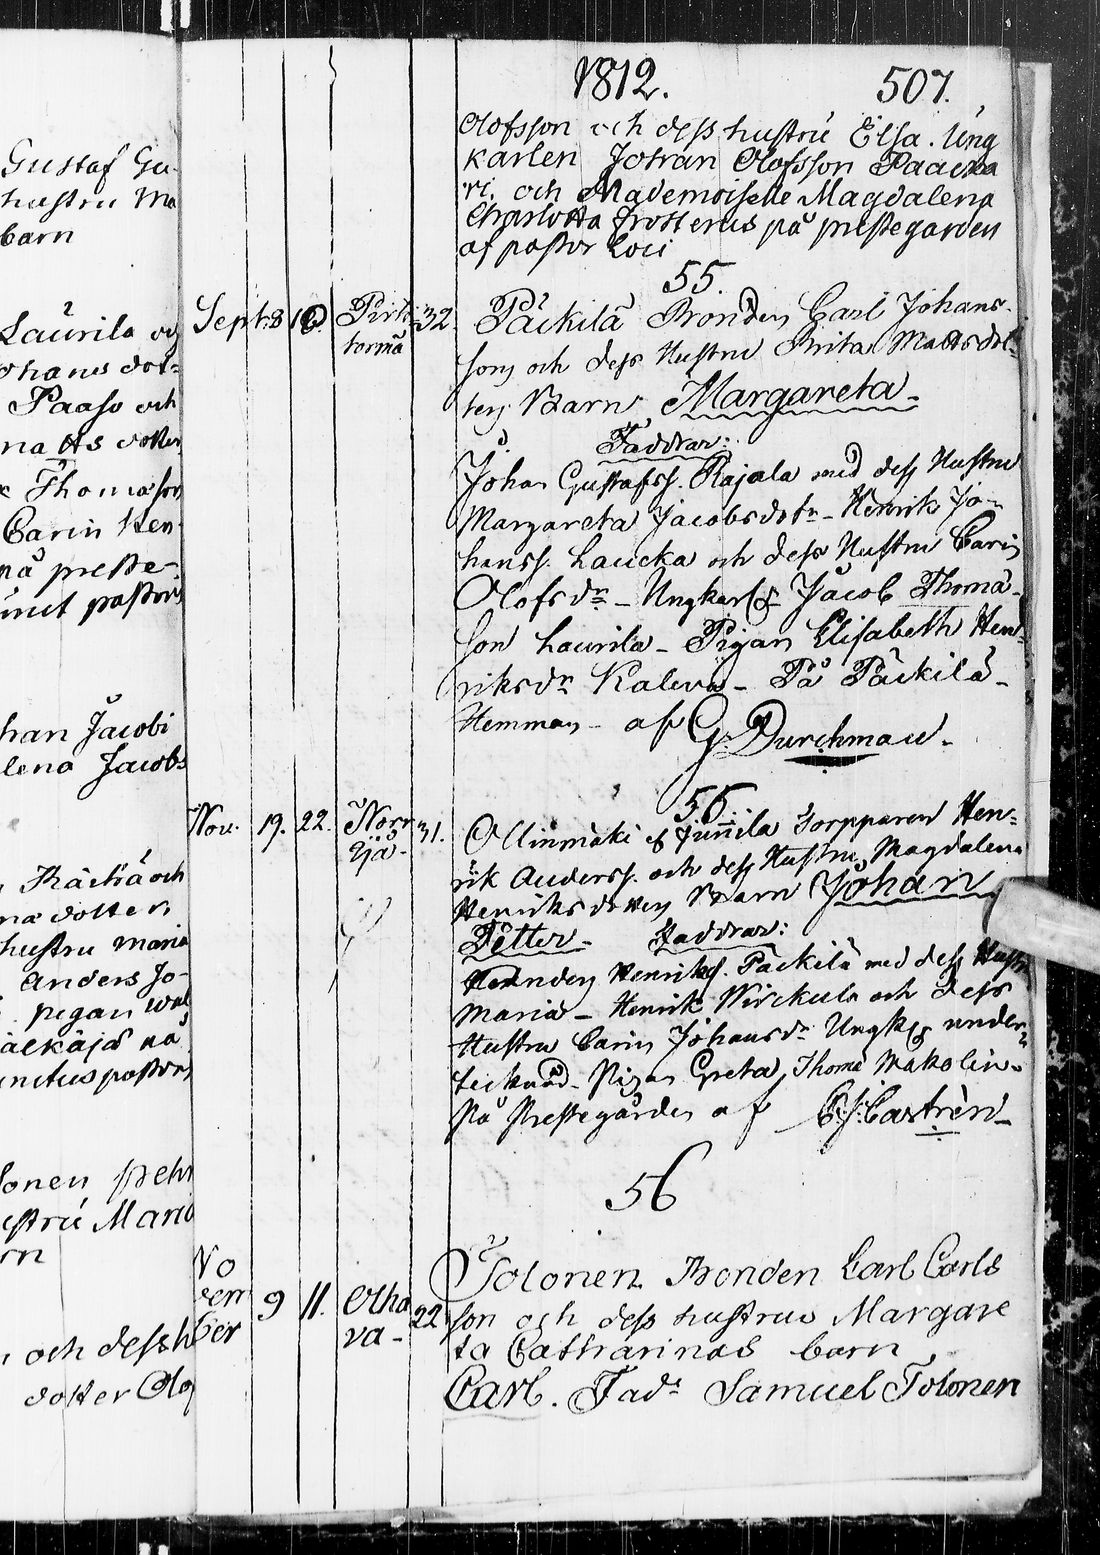 Gustaf Gu-
hustru Ma
barn
Laurila och
Johans dot=
Paaso och
na Ms dotter
Thomasson
Carin Hen-
på preste-
han Jacobi
lena Jacobs
Räckä och
na dotter
hustru Maria
Anders Jo-
pigan Wal
sonen Pehr
hustru Maria
rn
och dess h
dotter Olo
1812. 507.
Olofsson och dess hustru Elsa. Ung
karlen Johan Olofsson Paacka
ri, och Mademoiselle Magdalena
Charlotta Frosterus på prestegården
af pastor Loci
55.
Sept: 8 10. Pirt- 32. Päckilä Bonden Carl Johans-
tormä son och dess Hustru Brita Mattsdot-
ters Barn Margareta.
Faddrar:
Johan Gustafss. Rajala med dess Hustru
Margareta Jacobsdotr - Henrik Jo-
hanss. Laucka och dess Hustru Carin
Olofsdr - Ungkarln Jacob Thomæ-
son Laurila - Pigan Elisabeth Hen-
riksdr Kaleva - På Päckilä -
Hemman - af G. Durchman.
56.
Nov. 19. 22. Norr 31. Ollinmäki af Junnila Torpparen Hen=
Yjä - rik Anderss. och dess Hustru Magdalena
Henriksdotters Barn Johan
Petter - Faddrar:
Bonden Henrikss. Päckilä med dess Hustru
Maria - Henrik Wirckula och dess
Hustru Carin Johansdr Ungk. under-
tecknad - Pigan Greta Thomæ Makolin -
På Prestegården af E. J. Castrèn -
56
No
vem 9 11. Olha 22 Tolonen Bonden Carl Carls
ber va - son och dess hustrus Margare
ta Catharinas barn
Carl. Fadr Samuel Tolonen